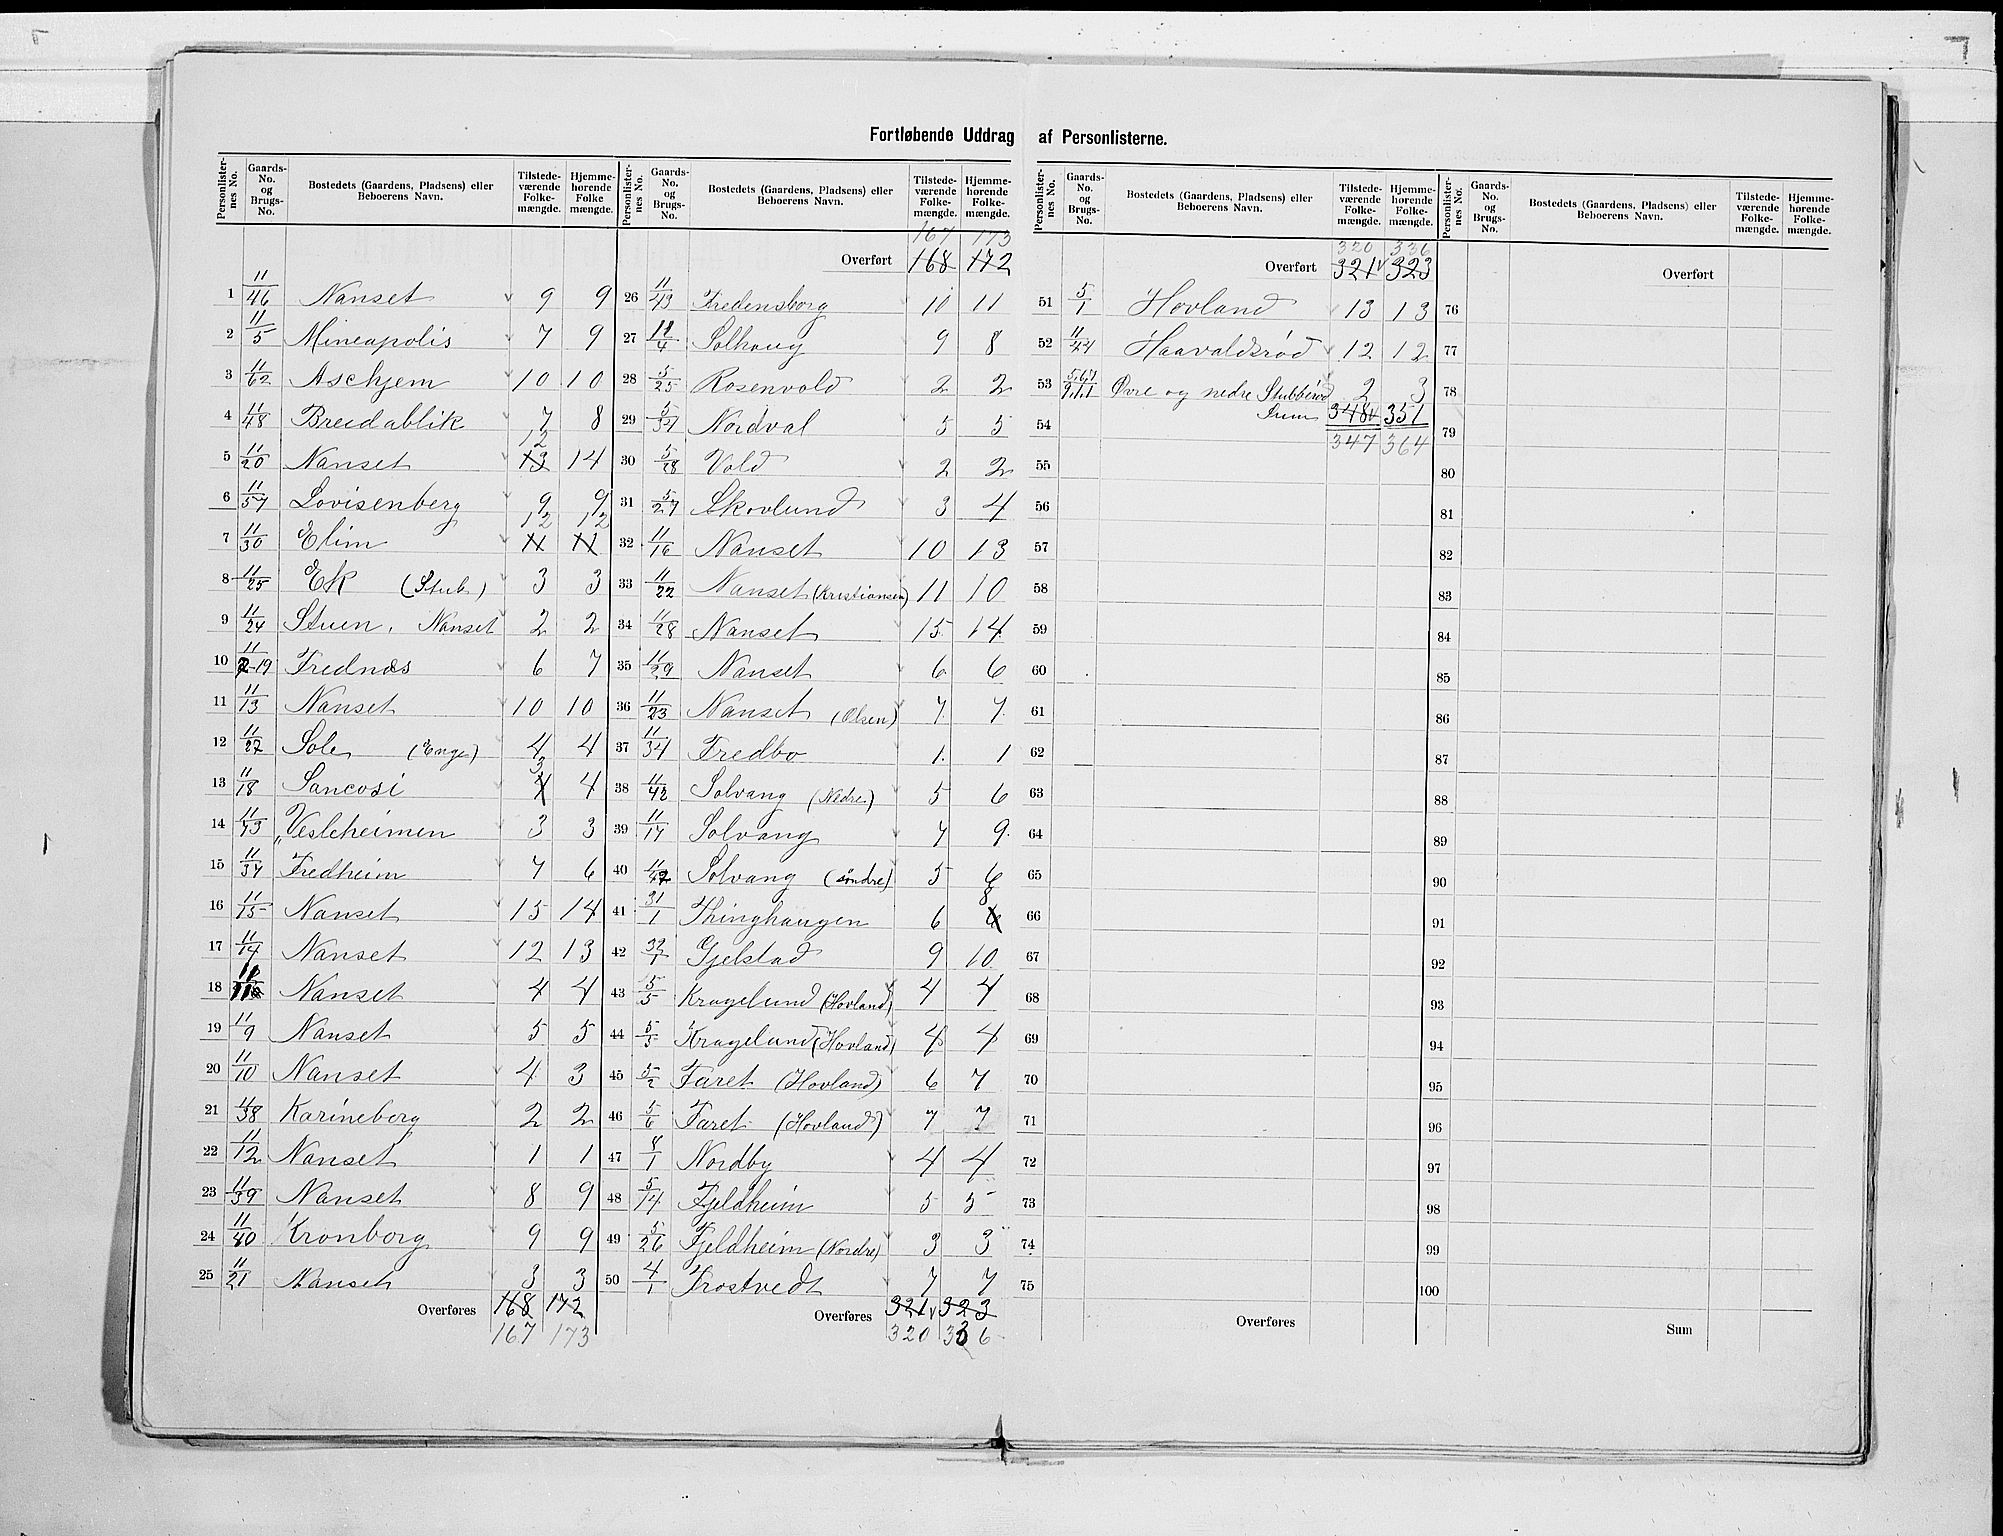 Fortløbende Uddrag af Personlisterne.
Personlister-nes No. Gaards-No. og Brugs-No. Bostedets (Gaardens, Pladsens) eller Beboerens Navn. Tilstede-værende Folke-mængde. Hjemme-hørende Folke mængde.
1 11/46 Nanset 9 9
2 11/5 Mineapolis 7 9
3 11/62 Aschjem 10 10
4 11/48 Breidablik 7 8
5 11/20 Nanset 13 12 14
6 11/57 Lovisenberg 9 9
7 11/30 Elim 11 12 11 12
8 11/25 Ek (Stub.) 3 3
9 11/24 Stuen, Nanset 2 2
10 11/2-19 Frednæs 6 7
11 11/13 Nanset 10 10
12 11/27 Sole (Enge) 4 4
13 11/18 Sancosi 4 3 4
14 11/43 Vesleheimen 3 3
15 11/37 Fredheim 7 6
16 11/15 Nanset 15 14
17 11/14 Nanset 12 13
18 Nanset 4 4
19 11/9 Nanset 5 5
20 11/10 Nanset 4 3
21 11/38 Karineborg 2 2
22 11/12 Nanset 1 1
23 11/39 Nanset 8 9
24 11/40 Kronborg 9 9
25 11/21 Nanset 3 3
Overføres 168 172
167 173
Personlister-nes No. Gaards-No. og Brugs-No. Bostedets (Gaardens, Pladsens) eller Beboerens Navn. Tilstede-værende Folke-mængde. Hjemme-hørende Folke-mængde.
167 173
Overført 168 172
26 11/49 Fredensborg 10 11
27 11/4 Solhaug 9 8
28 5/25 Rosenvold 2 2
29 5/37 Nordval 5 5
30 5/28 Vold 2 2
31 5/27 Skovlund 3 4
32 11/16 Nanset 10 13
33 11/22 Nanset (Kristiansen) 11 10
34 11/28 Nanset 15 14
35 11/29 Nanset 6 6
36 11/23 Nanset (Olsen) 7 7
37 11/34 Fredbo 1 1
38 11/42 Solvang (Nedre) 5 6
39 11/17 Solvang 7 9
40 11/47 Solvang (søndre) 5 6
41 31/1 Thinghaugen 6 6 8
42 32/1 Gjelstad 9 10
43 5/5 Kragelund (Hovland) 4 4
44 5/3 Kragelund (Hovland) 4 4
45 5/2 Faret (Hovland) 6 7
46 5/6 Faret (Hovland) 7 7
47 8/1 Nordby 4 4
48 5/14 Fjeldheim 5 5
49 5/26 Fjeldheim (Nordre) 3 3
50 4/1 Frostvedt 7 7
Overføres 321 323
320 336
Personlister-nes No. Gaards-No. og Brugs-No. Bostedets (Gaardens, Pladsens) eller Beboerens Navn. Tilstede-værende Folke-mængde. Hjemme-hørende Folke-mængde.
320 336
Overført 321 323
51 5/1 Hovland 13 13
52 11/44 Haavaldsrød 12 12
53 Øvre og nedre Stubberød 2 3
54 Sum 348 351
347 364
55
56
57
58
59
60
61
62
63
64
65
66
67
68
69
70
71
72
73
74
75
Overføres
Personlister-nes No. Gaards-No. og Brugs-No. Bostedets (Gaardens, Pladsens) eller Beboerens Navn. Tilstede-værende Folke-mængde. Hjemme-hørende Folke-mængde.
Overført
76
77
78
79
80
81
82
83
84
85
86
87
88
89
90
91
92
93
94
95
96
97
98
99
100
Sum